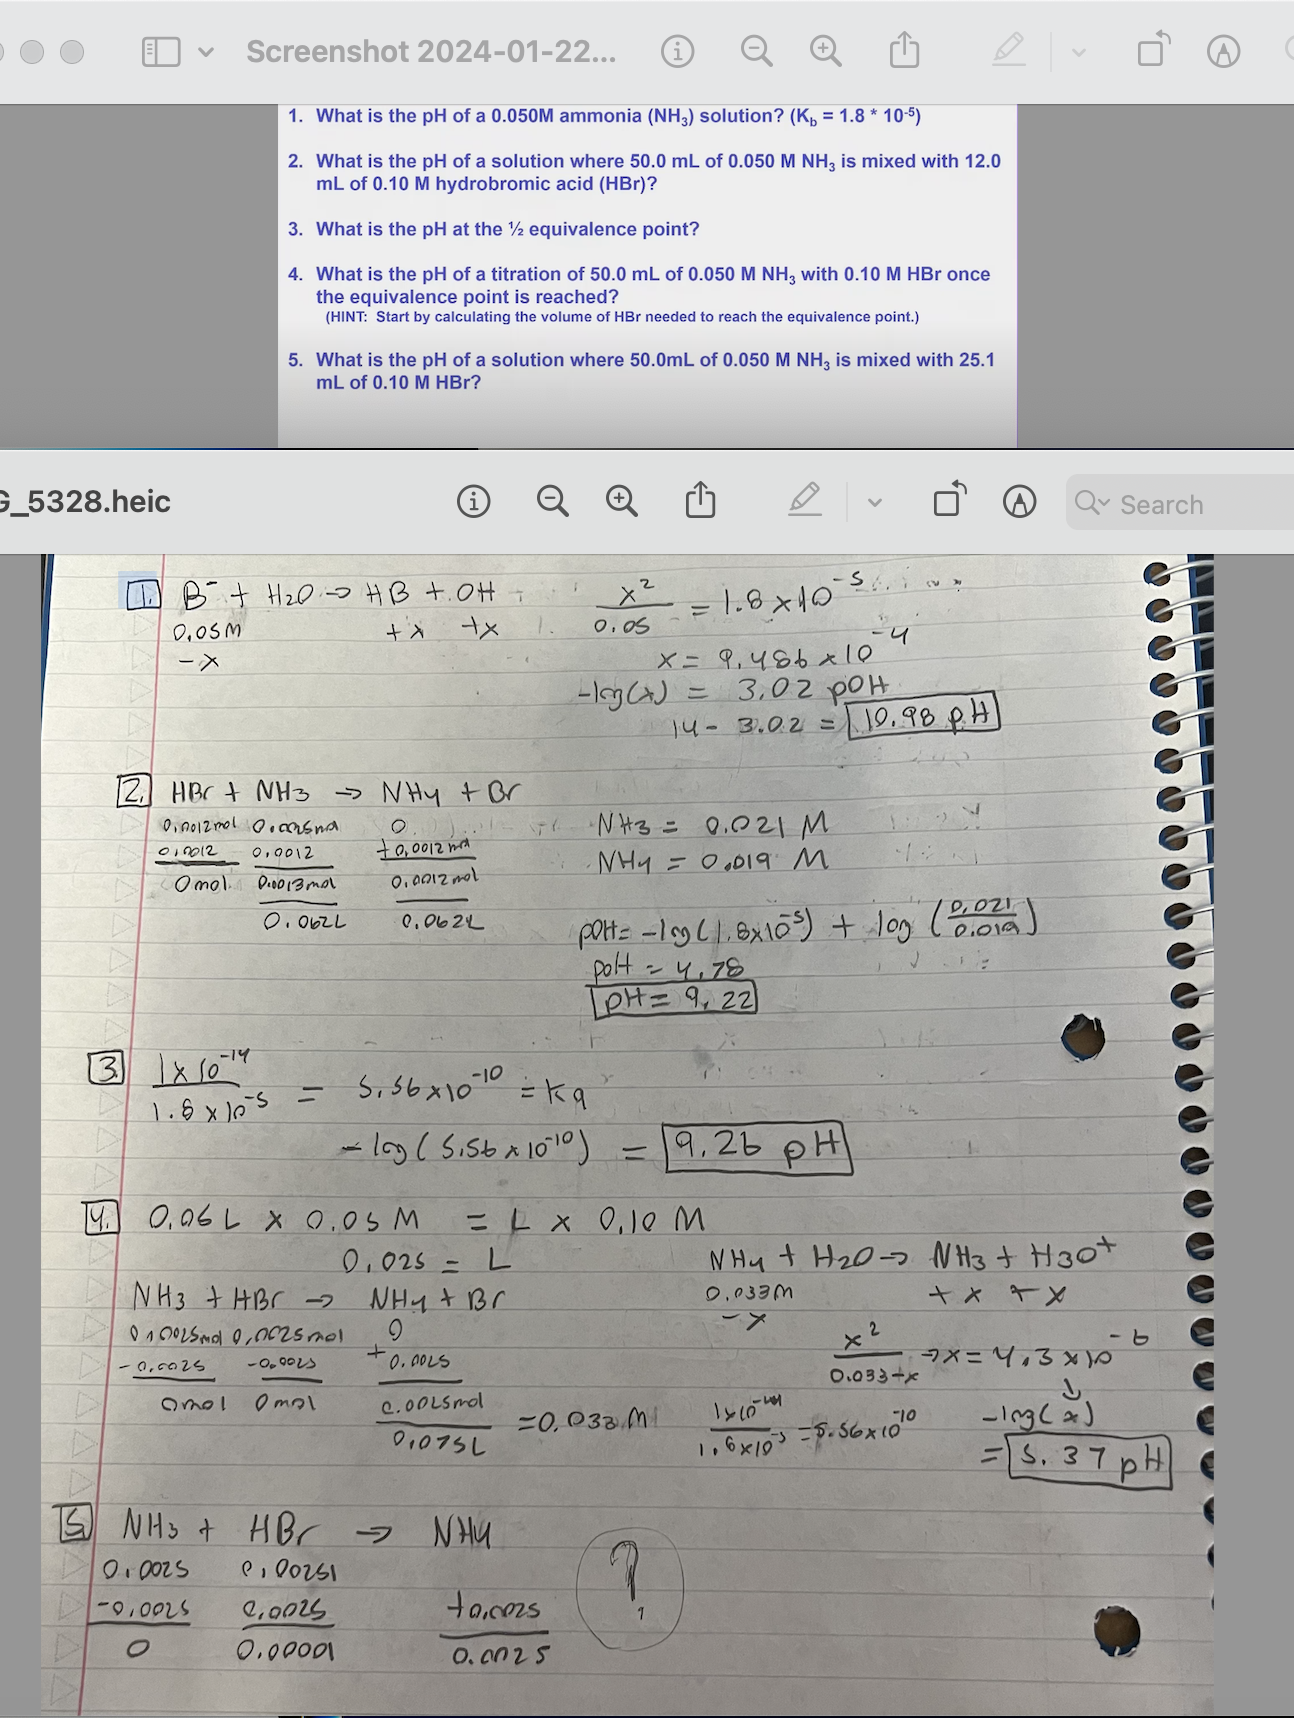 Screenshot 2024-01-22...
1. What is the pH of a 0.050M ammonia (NH₃) solution? (K_b = 1.8 * 10⁻⁵)
2. What is the pH of a solution where 50.0 mL of 0.050 M NH₃ is mixed with 12.0
mL of 0.10 M hydrobromic acid (HBr)?
3. What is the pH at the ½ equivalence point?
4. What is the pH of a titration of 50.0 mL of 0.050 M NH₃ with 0.10 M HBr once
the equivalence point is reached?
(HINT: Start by calculating the volume of HBr needed to reach the equivalence point.)
5. What is the pH of a solution where 50.0mL of 0.050 M NH₃ is mixed with 25.1
mL of 0.10 M HBr?
G_5328.heic
Search
1. B⁻ + H2O → HB + OH
0.05M +x +x
-x
x²/0.05 = 1.8 x 10⁻⁵
x = 9.486 x 10⁻⁴
-log(x) = 3.02 pOH
14 - 3.02 = 10.98 pH
2. HBr + NH3 → NH4 + Br
0.0012mol 0.0025mol 0
0.0012 0.0012 +0.0012mol
0mol 0.0013mol 0.0012mol
0.062L 0.062L
NH3 = 0.021 M
NH4 = 0.019 M
pOH = -log(1.8x10⁻⁵) + log(0.021/0.019)
pOH = 4.78
pH = 9.22
3. 1 x 10⁻¹⁴/1.8 x 10⁻⁵ = 5.56 x 10⁻¹⁰ = Ka
-log(5.56 x 10⁻¹⁰) = 9.26 pH
4. 0.06 L x 0.05 M = L x 0.10 M
0.025 = L
NH3 + HBr → NH4 + Br
0.0025mol 0.0025mol 0
-0.0025 -0.0025 +0.0025
0mol 0mol 0.0025mol/0.075L = 0.033 M
NH4 + H2O → NH3 + H3O⁺
0.033M +x +x
-x
x²/0.033-x → x = 4.3 x 10⁻⁶
1x10⁻¹⁴/1.8x10⁻⁵ = 5.56x10⁻¹⁰
-log(x)
= 5.37 pH
5. NH3 + HBr → NH4
0.0025 0.00251
-0.0025 0.0025 +0.0025
0 0.00001 0.0025
?